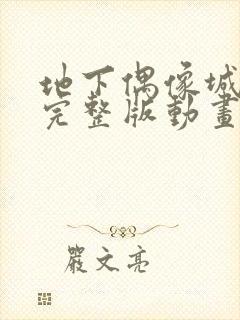 地下偶像城
完整版動畫
嚴文亮